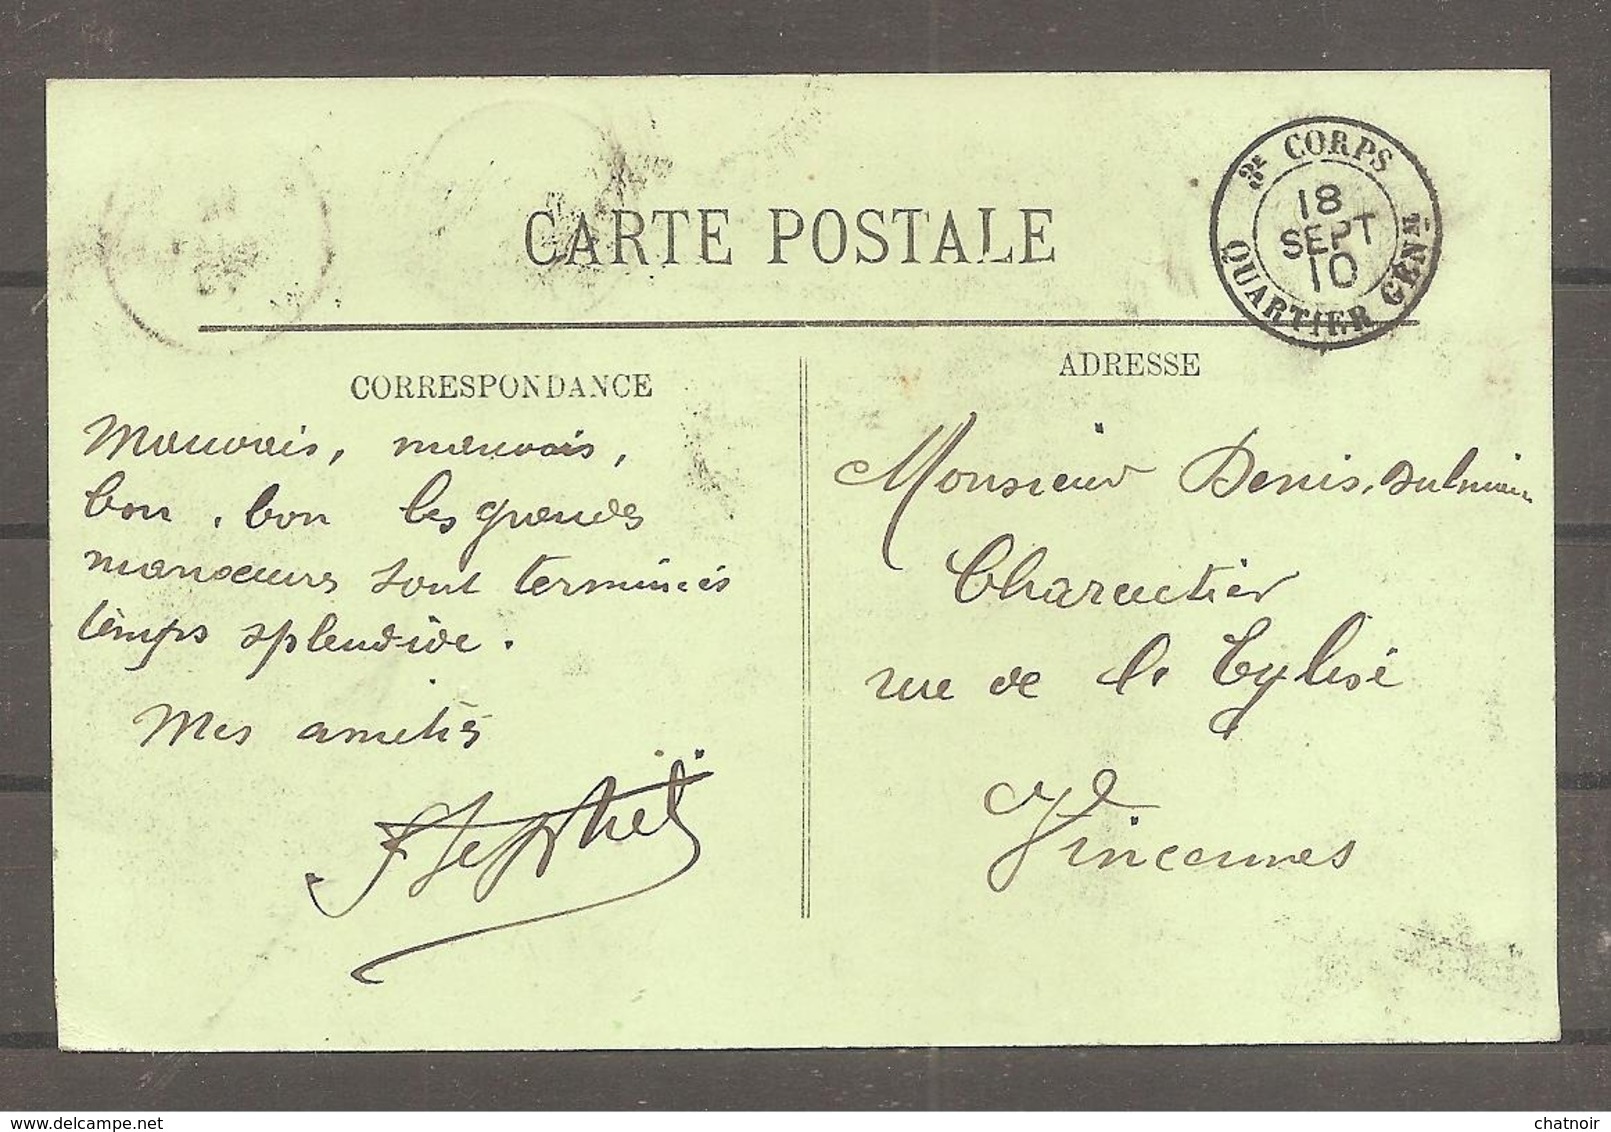 3E CORPS
18
SEPT
10
QUARTIER GÉNAL
CARTE POSTALE
CORRESPONDANCE
ADRESSE
Mauvais, mauvais,
bon, bon les grandes
manœuvres sont terminées
temps splendide.
Mes amitiés
Monsieur Denis
Charcutier
rue de l' Eglise
Vincennes
chatnoir